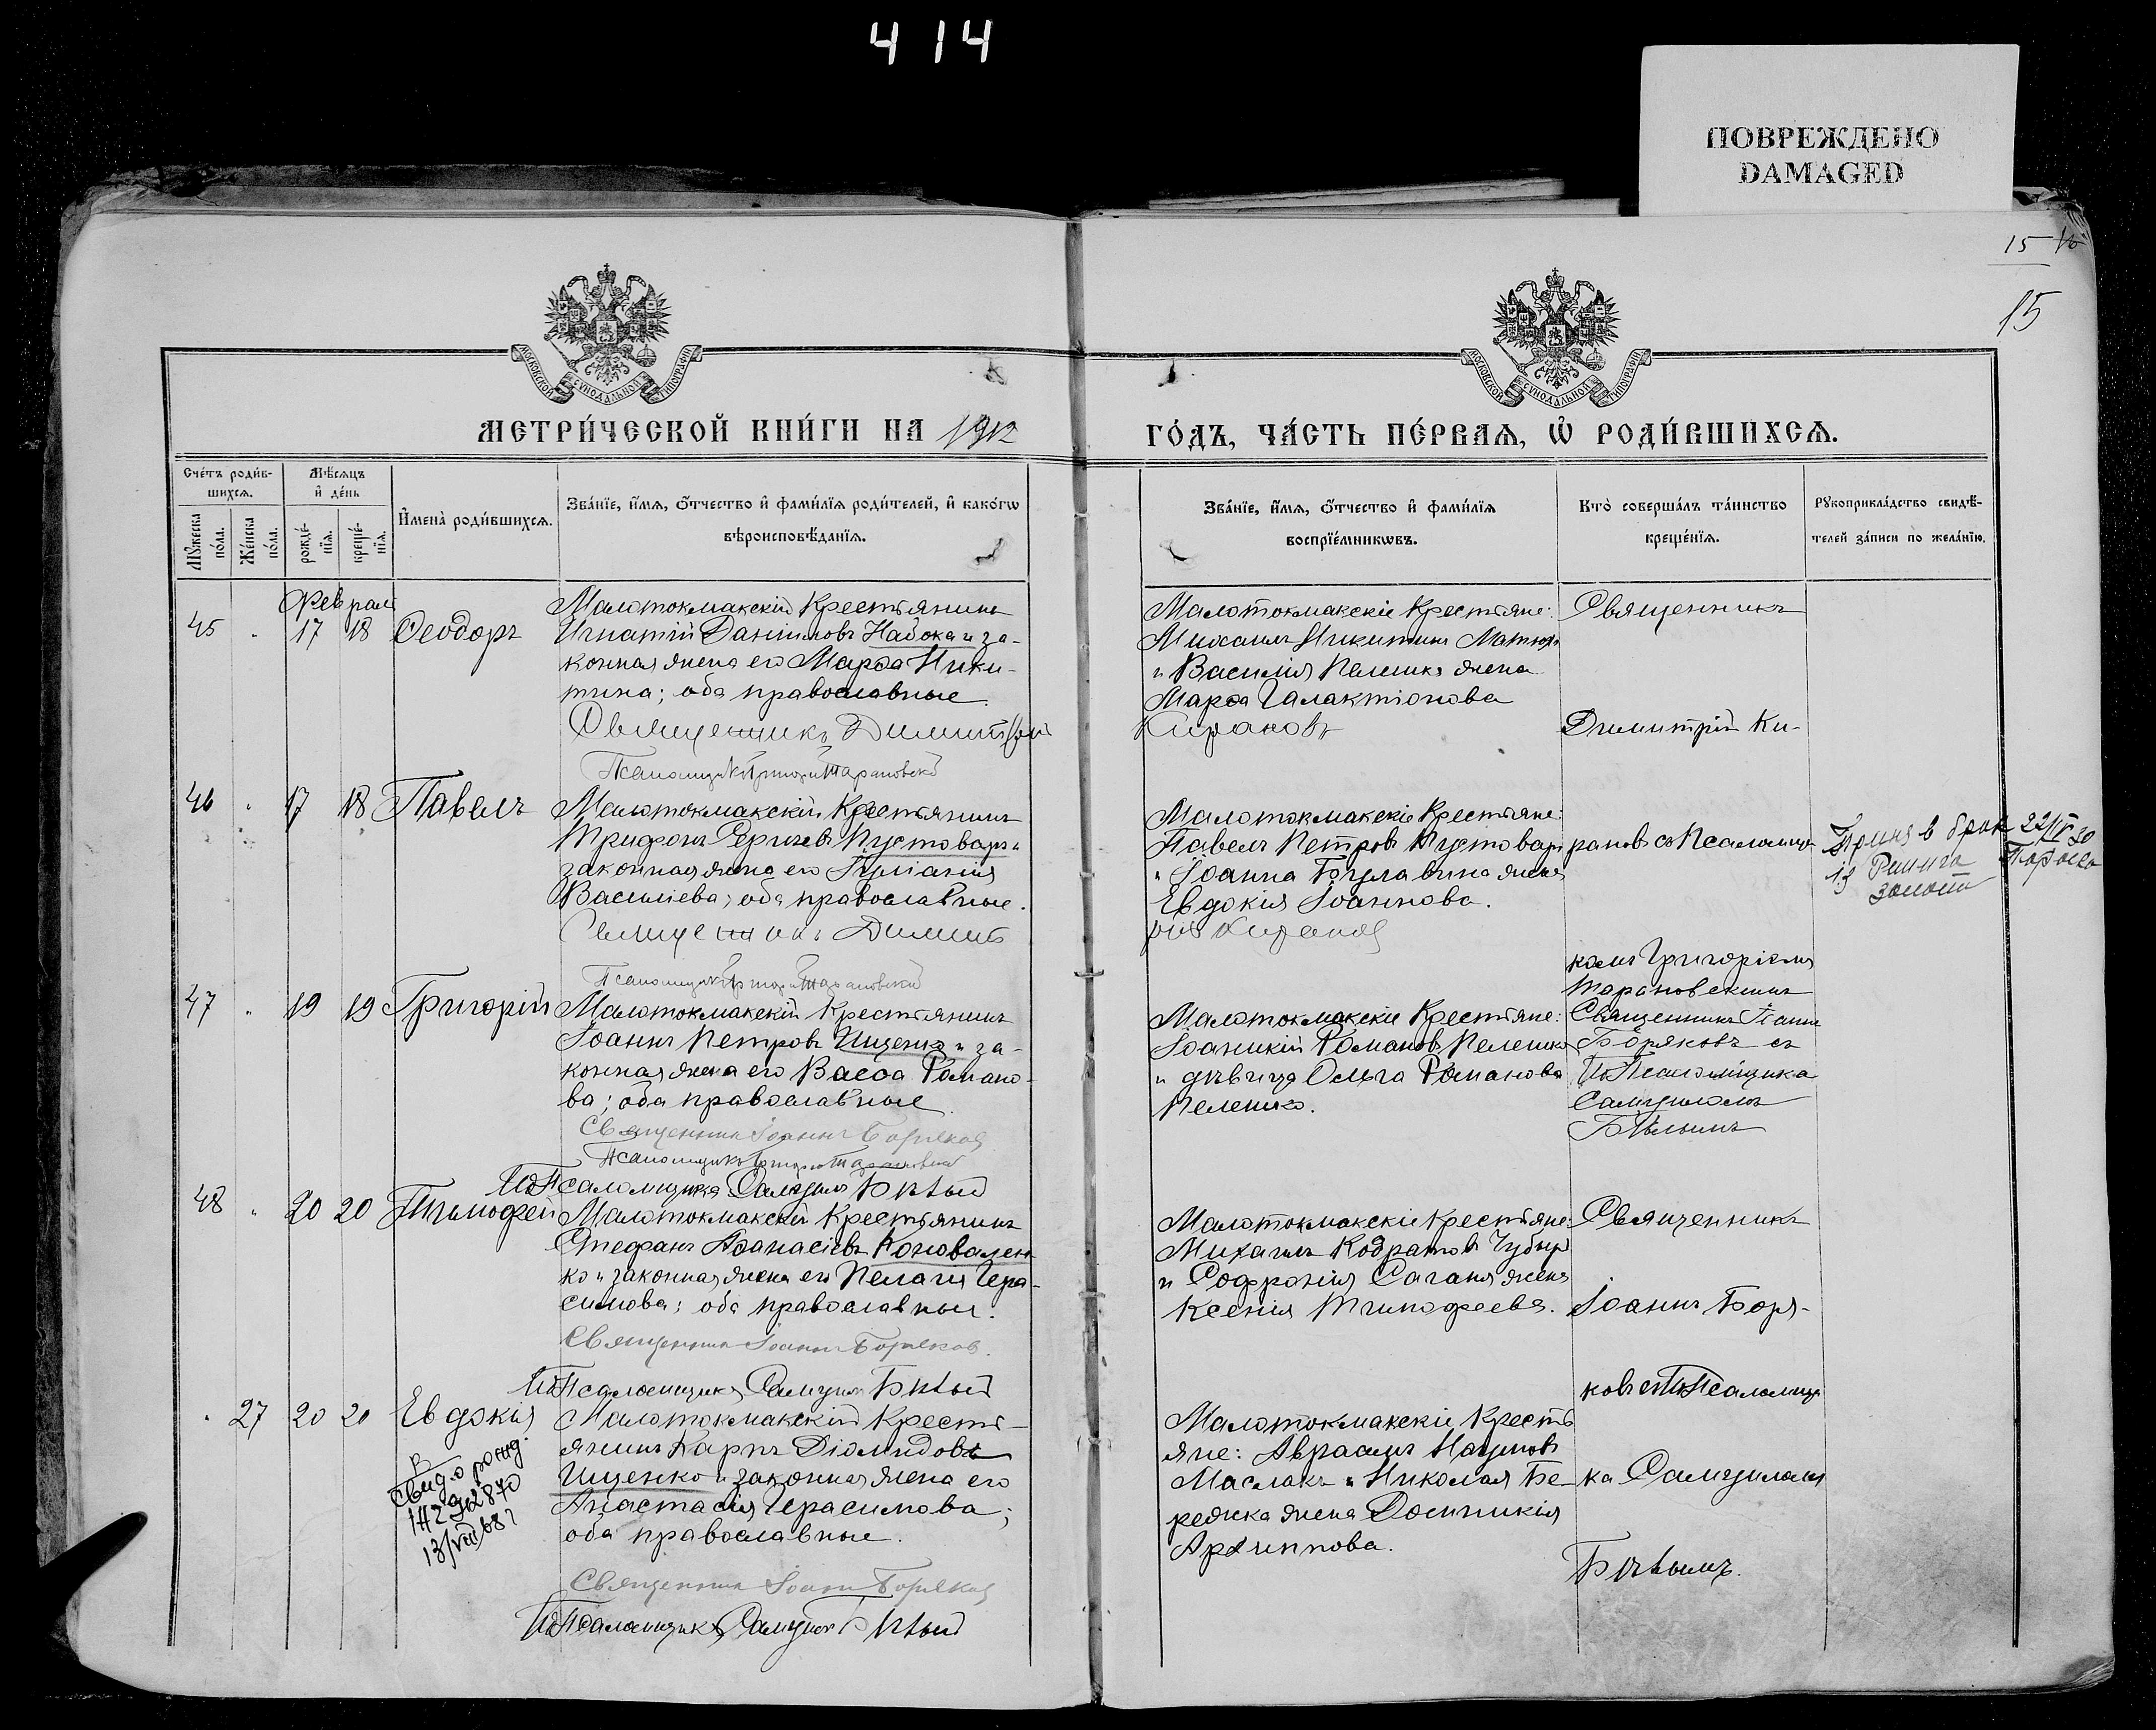 414
ПОВРЕЖДЕНО
DAMAGED
15
15
МОСКОВСКОЙ СѴНОДАЛЬНОЙ ТИПОГРАФІИ
МОСКОВСКОЙ СѴНОДАЛЬНОЙ ТИПОГРАФІИ
МЕТРИ́ЧЕСКОЙ КНИ́ГИ НА 1912
ГО́ДЪ, ЧА́СТЬ ПЕ́РВАѦ, Ѽ РОДИ́ВШИХСѦ.
Сче́тъ роди́в-
шихсѧ.
Мѣ́сяцъ
и҆ де́нь
Мꙋ́жеска по́ла.
Же́нска по́ла.
рожде́-нїѧ.
креще́-нїѧ.
И҆мена̀ роди́вшихсѧ.
Зва́нїе, и҆́мѧ, ѻ҆́тчество и҆ фами́лїѧ роди́телей, и҆ како́гѡ
вѣроисповѣ́данїѧ.
Зва́нїе, и҆́мѧ, ѻ҆́тчество и҆ фами́лїѧ
воспрїе́мникѡвъ.
Кто̀ соверша́лъ та́инство
креще́нїѧ.
Рꙋкоприкла́дство свидѣ́-
телей за́писи по жела́нїю.
Феврал
45 " 17 18 Ѳеодоръ
Малотокмакскій Крестьянинъ
Игнатій Даніиловъ Набока и за-
конная жена его Марѳа Ники-
тина; оба православные.
Священникъ Димитрій
Псаломщикъ Григорій Тарановскій
Малотокмакскіе Крестьяне:
Михаилъ Никитинъ
и Василія Пелешка жена
Марѳа Галактіонова
Кирановъ
Священникъ
Димитрій Ки-
46 " 17 18 Павелъ
Малотокмакскій Крестьянинъ
Трифонъ Сергіевъ Пустоваръ и
законная жена его Іуліанія
Василіева; оба православные.
Священникъ Димит
Псаломщикъ Григорій Тарановскій
Малотокмакскіе Крестьяне:
Павелъ Петровъ Пустоваръ
и Іоанна Булавина жена
Евдокія Іоаннова.
рій Кирановъ
рановъ съ Псаломщи-
в брак 22/IV 30
із
комъ Григоріемъ
Тарановскимъ
47 " 19 19 Григорій
Малотокмакскій Крестьянинъ
Іоаннъ Петровъ Ищенко и за-
конная жена его Васса Романо-
ва; оба православные.
Священникъ Іоаннъ Боряковъ
Псаломщикъ Григорій Тарановскій
ИдПсаломщика Самуилъ Бѣлый
Малотокмакскіе Крестьяне:
Іоаникій Романовъ Пелешко
и дѣвица Ольга Романова
Пелешко.
Священникъ Іоаннъ
Боряковъ съ
ИдПсаломщика
Самуиломъ
Бѣлымъ
48 " 20 20 Тимофей
Малотокмакскій Крестьянинъ
Стефанъ Аѳанасіевъ Коновален-
ко и законная жена его Пелагія Гера-
симова; оба православные.
Священникъ Іоаннъ Боряковъ.
ИдПсаломщика Самуилъ Бѣлый
Малотокмакскіе Крестьяне:
Михаилъ Кодратовъ Чубыр
и Софронія Сагана жена
Ксенія Тимофеева.
Священникъ
Іоаннъ Боря-
ковъ съ ИдПсаломщи
" 27 20 20 Евдокія
Малотокмакскій Кресть-
янинъ Карпъ Діомидовъ
Ищенко и законная жена его
Анастасія Герасимова;
оба православные.
Священникъ Іоаннъ Боряковъ
ИдПсаломщика Самуилъ Бѣлый
Свид. о рожд.
13/VIII 68
Малотокмакскіе Кресть
яне: Авраамъ Наумовъ
Маслакъ и Николая Бе-
режка жена Домникія
Архиппова.
ка Самуиломъ
Бѣлымъ.